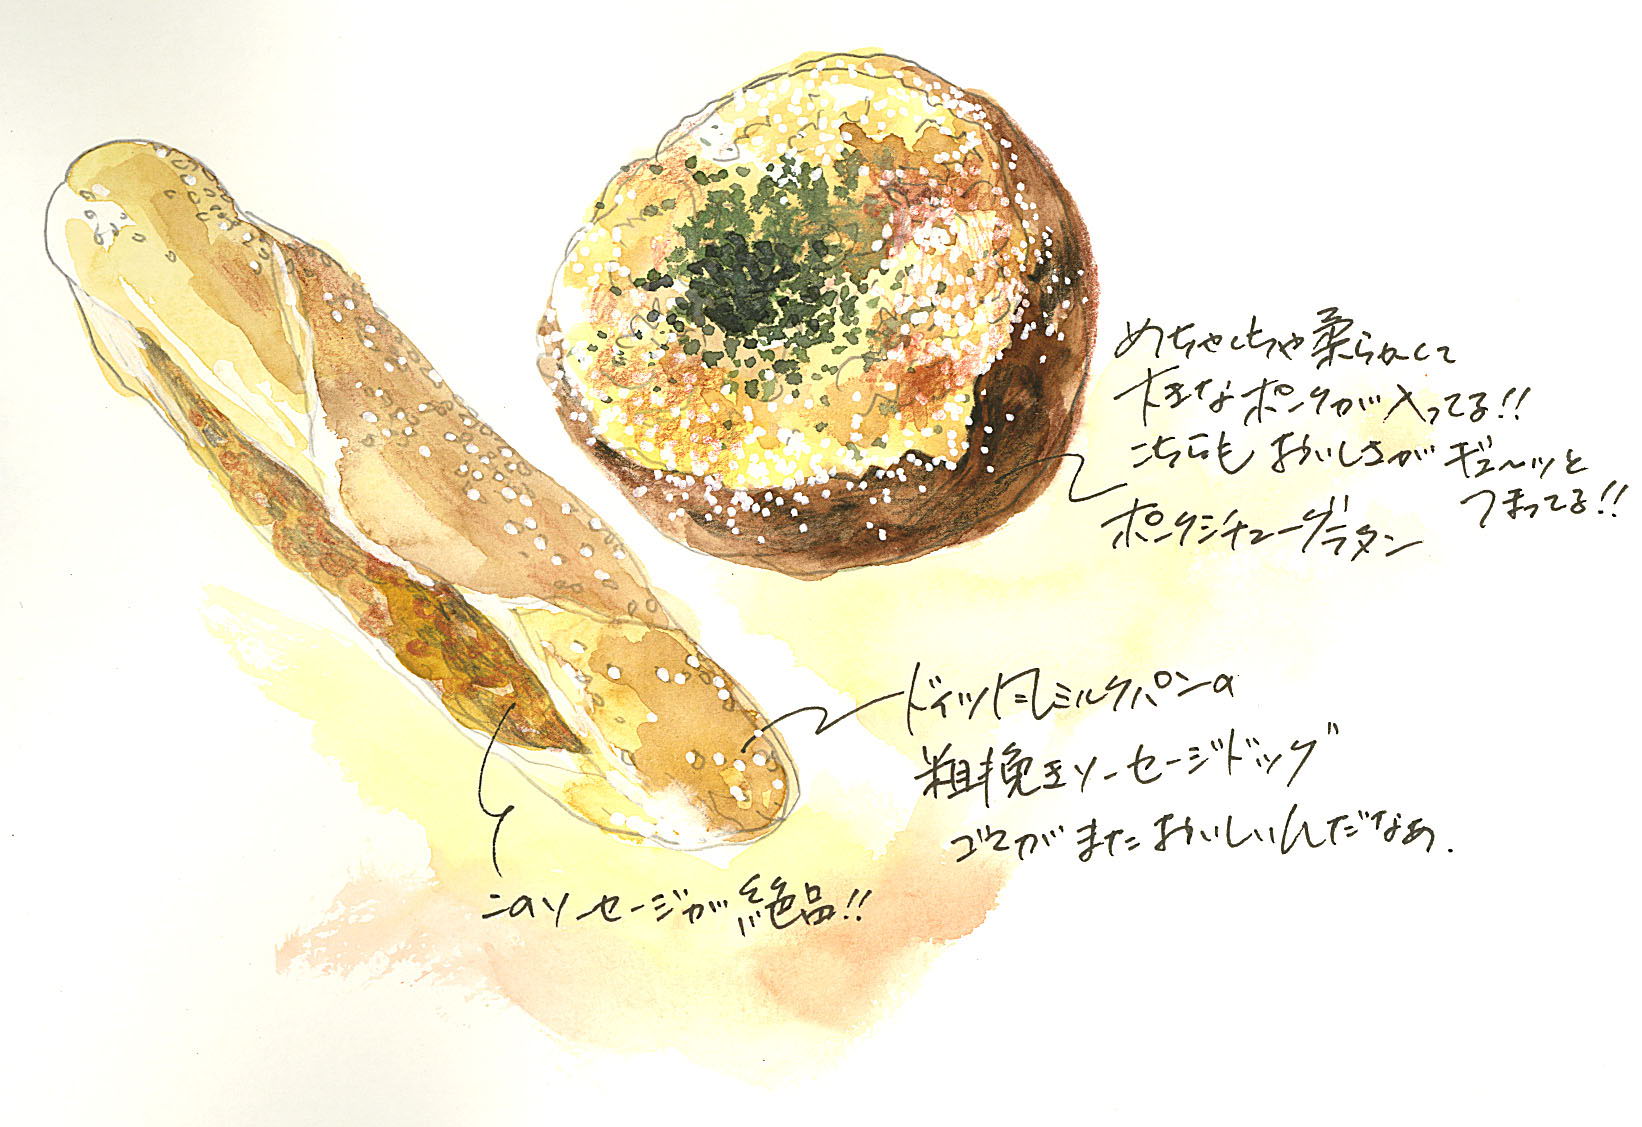 めちゃくちゃ柔らかくて
大きなポークが入ってる!!
こちらもおいしさがギューッと
つまってる!!
ポークシチューグラタン
ドイツ風ミルクパンの
粗挽きソーセージドッグ
ゴマがまたおいしいんだなぁ.
このソーセージが絶品!!